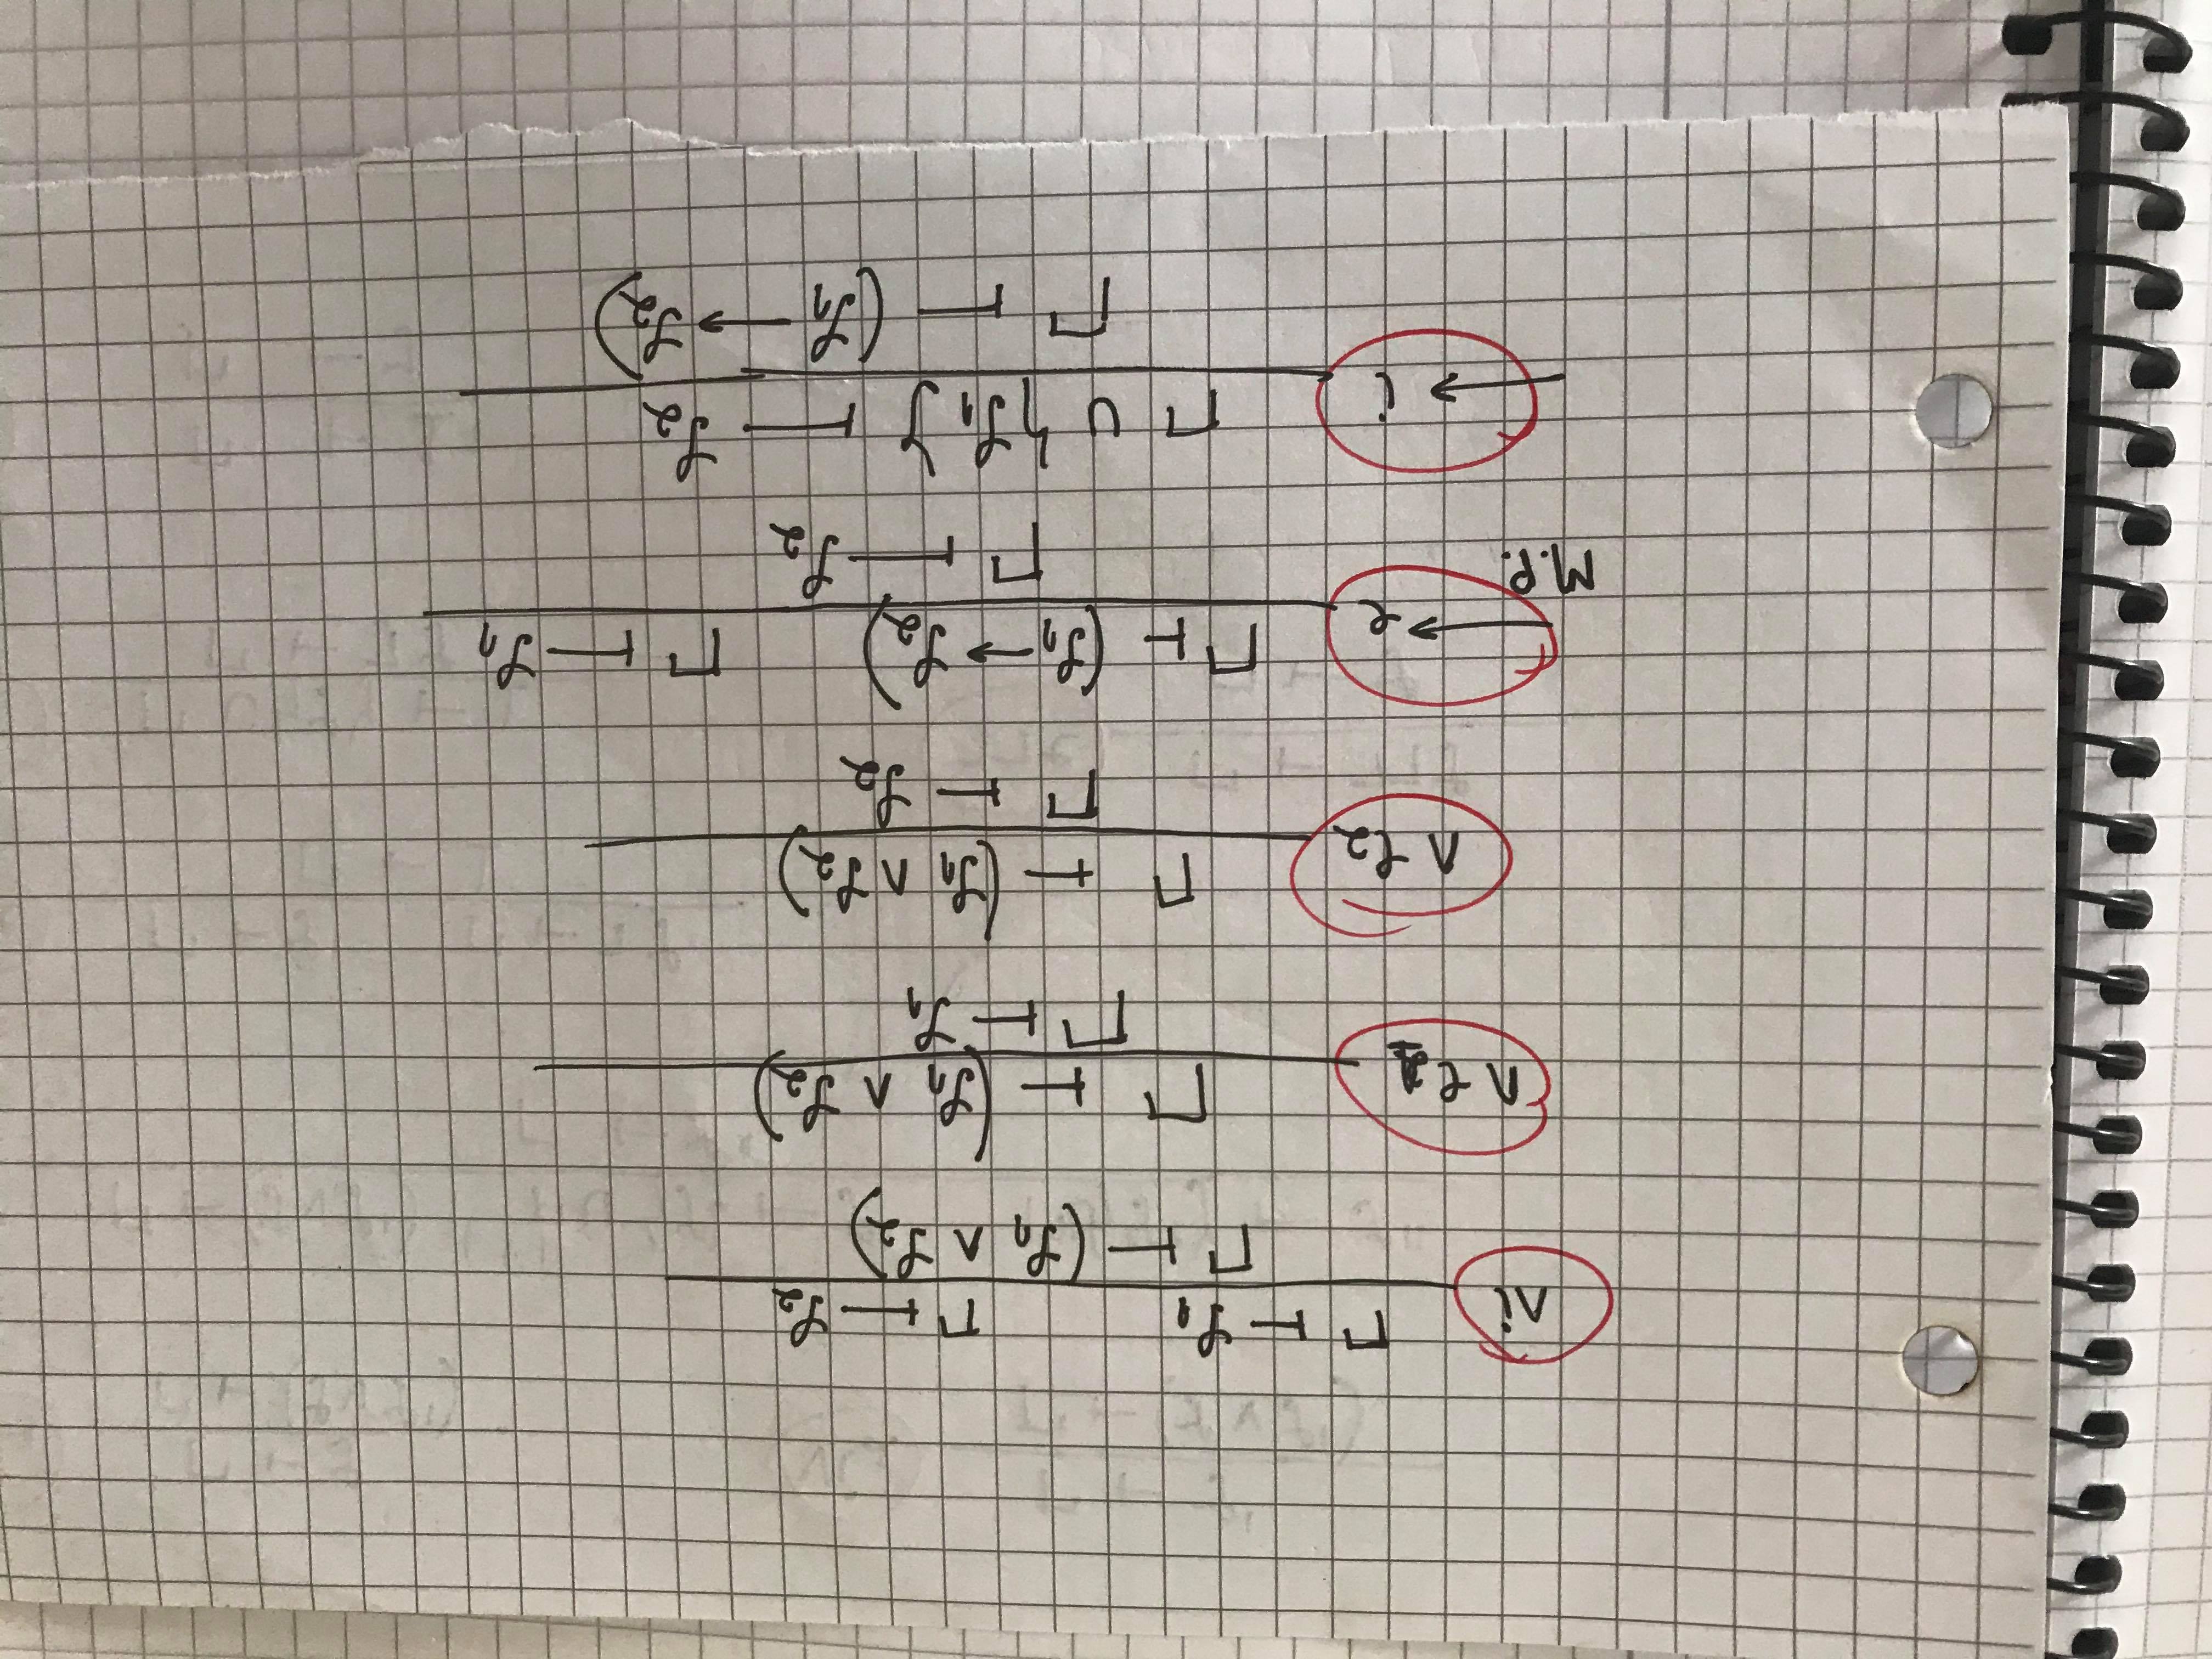 ∧i Γ ⊢ φ₁ Γ ⊢ φ₂
Γ ⊢ (φ₁ ∧ φ₂)
∧e₁ Γ ⊢ (φ₁ ∧ φ₂)
Γ ⊢ φ₁
∧e₂ Γ ⊢ (φ₁ ∧ φ₂)
Γ ⊢ φ₂
→e Γ ⊢ (φ₁ → φ₂) Γ ⊢ φ₁
M.P. Γ ⊢ φ₂
→i Γ ∪ {φ₁} ⊢ φ₂
Γ ⊢ (φ₁ → φ₂)